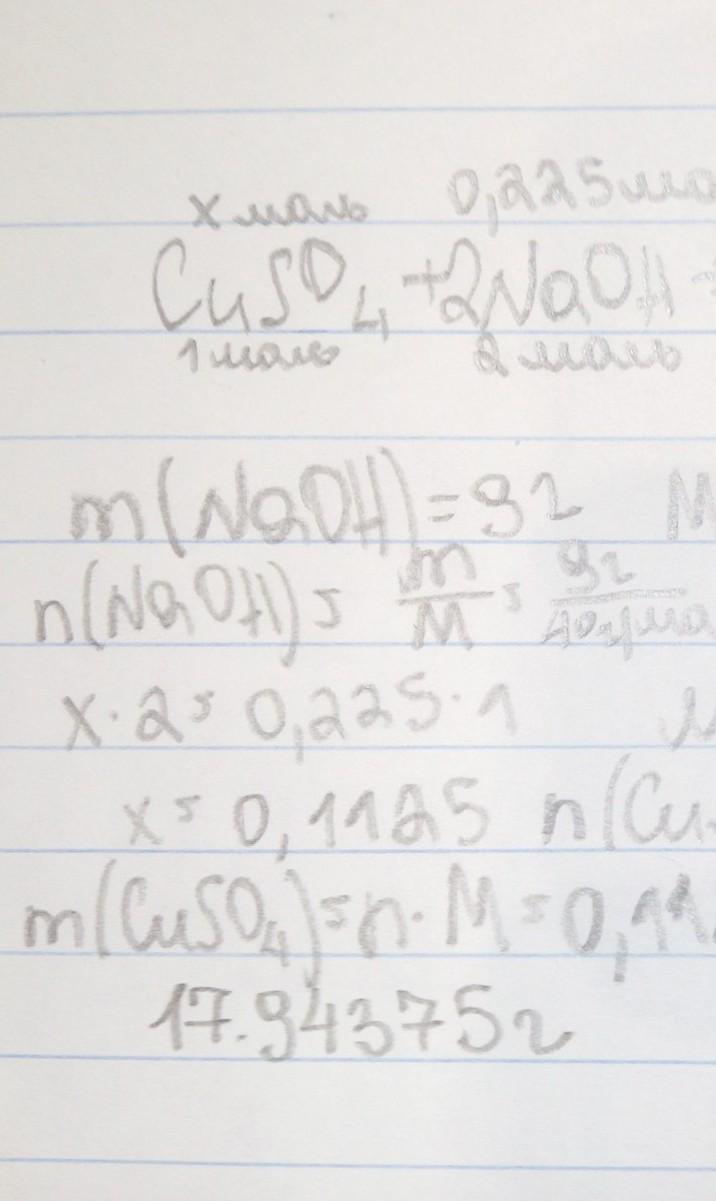 x моль 0,225 мо
CuSO₄ + 2NaOH
1 моль 2 моль
m(NaOH) = 9г M
n(NaOH) = m/M = 9г/40г/мо
x · 2 = 0,225 · 1
x = 0,1125 n(Cu
m(CuSO₄) = n · M = 0,11
17.94375г